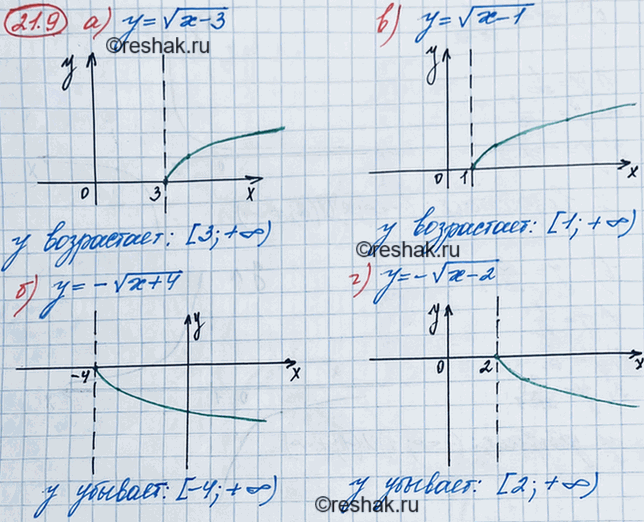 21.9 а) y=√x-3
©reshak.ru
y
0 3 x
y возрастает: [3;+∞)
в) y=√x-1
y
0 1 x
y возрастает: [1;+∞)
©reshak.ru
б) y=-√x+4
y
-4 x
y убывает: [-4;+∞)
г) y=-√x-2
y
0 2 x
y убывает: [2;+∞)
©reshak.ru